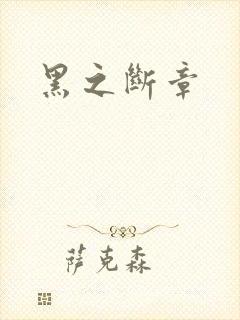 黑之斷章
萨克森